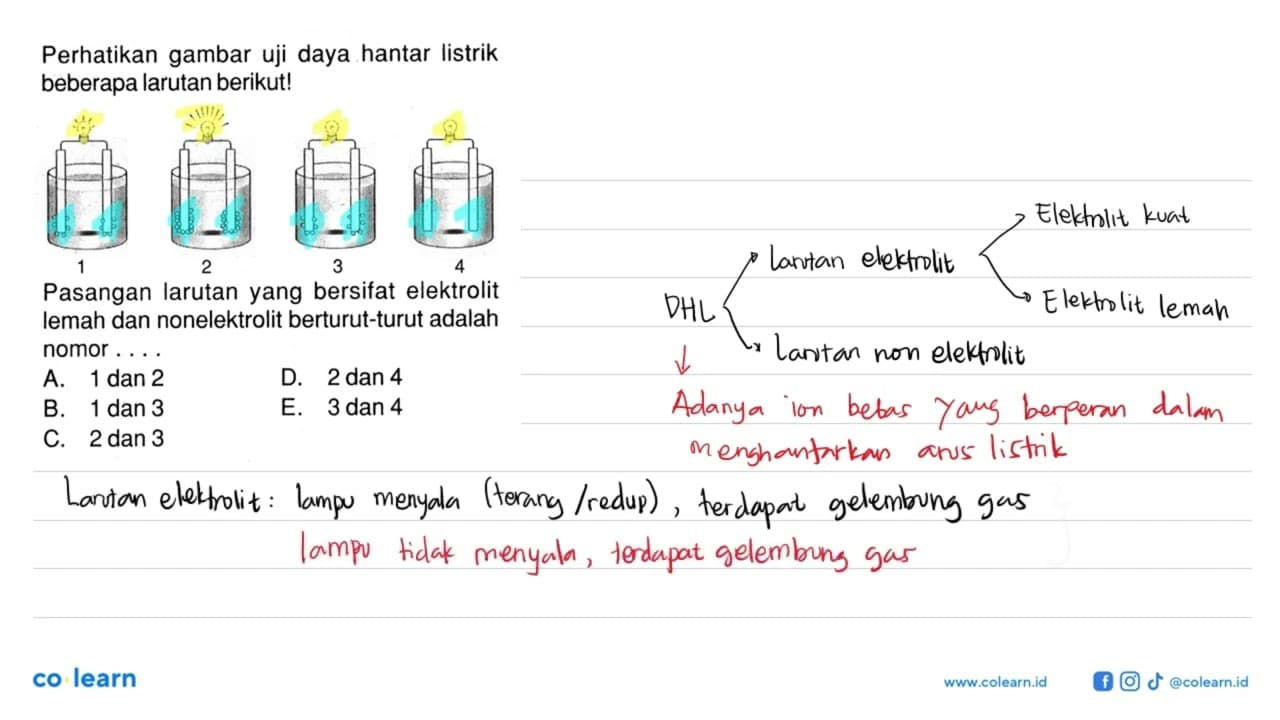 Perhatikan gambar uji daya hantar listrik
beberapa larutan berikut!
1 2 3 4
Pasangan larutan yang bersifat elektrolit
lemah dan nonelektrolit berturut-turut adalah
nomor . . . .
A. 1 dan 2 D. 2 dan 4
B. 1 dan 3 E. 3 dan 4
C. 2 dan 3
Elektrolit kuat
Larutan elektrolit
DHL
Elektrolit lemah
Larutan non elektrolit
Adanya ion bebas yang berperan dalam
menghantarkan arus listrik
Larutan elektrolit : lampu menyala (terang /redup), terdapat gelembung gas
lampu tidak menyala, terdapat gelembung gas
co learn
www.colearn.id
@colearn.id